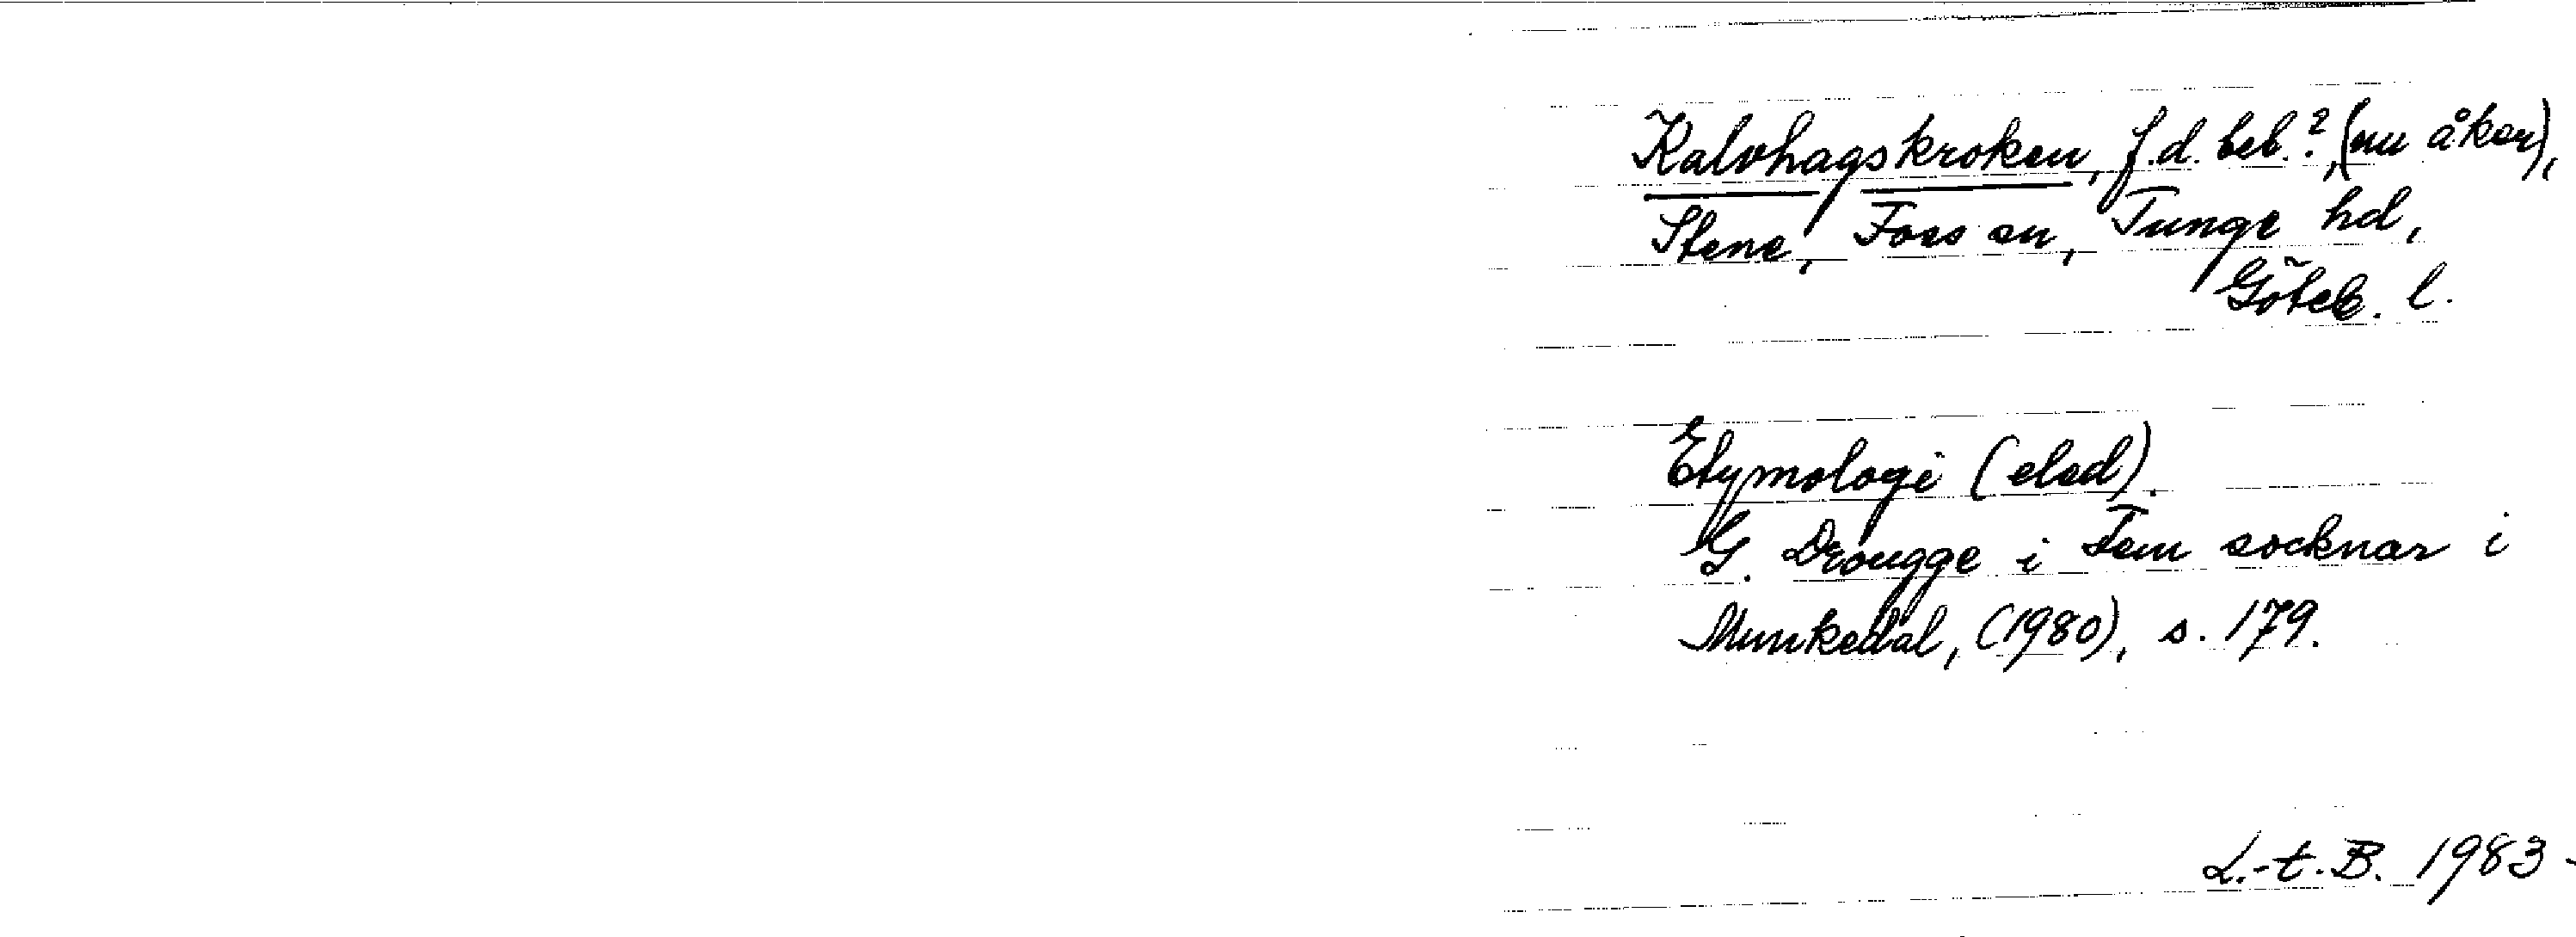 Kalvhagskroken, f.d. beb.?, (nu åker),
Stene, Foss sn, Tunge hd,
Göteb. l.
Etymologi (eled).
G. Drougge i Fem socknar i
Munkedal, (1980), s. 179.
L.-t. B. 1983